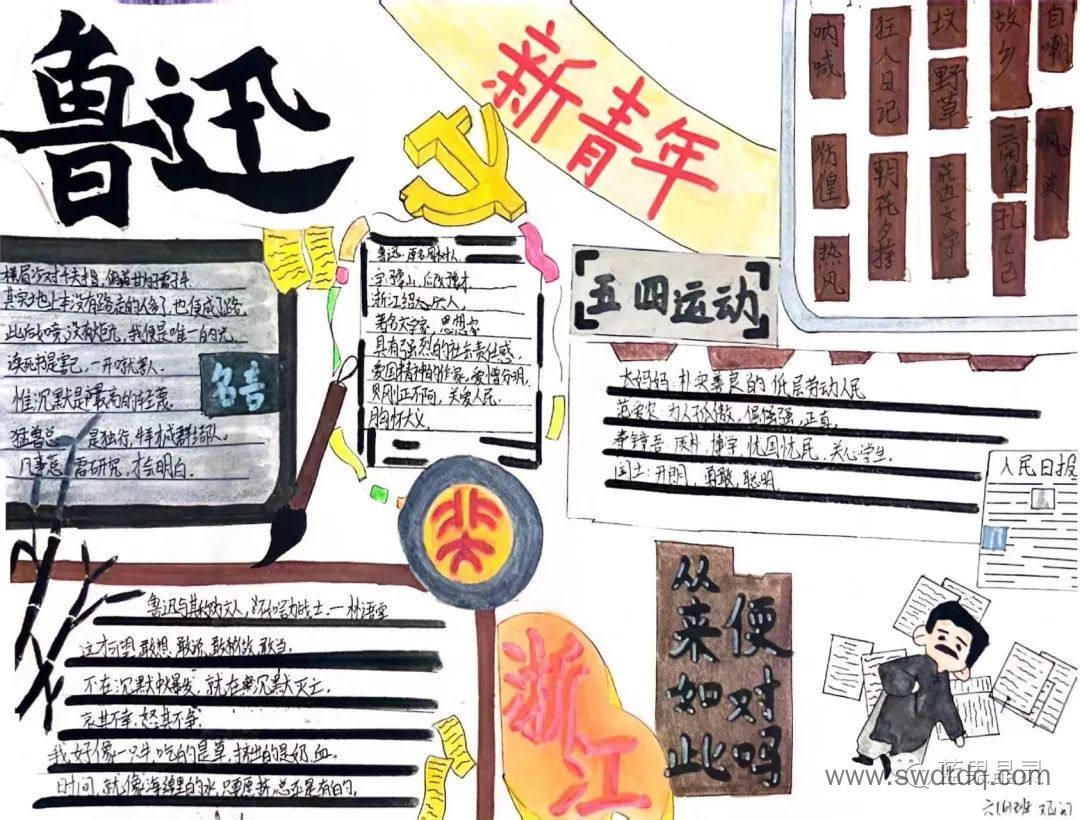 鲁迅
新青年
自嘲
故乡
坟
狂人日记
呐喊
风波
三闲集
野草
朝花夕拾
彷徨
孔乙己
花边文学
热风
横眉冷对千夫指,俯首甘为孺子牛
其实地上本没有路走的人多了,也便成了路
此后如竟没有炬火,我便是唯一的光。
读死书是害己,一开口就害人。
惟沉默是最高的轻蔑。
猛兽总是独行,牛羊才成群结队。
凡事总需研究,才会明白。
名言
鲁迅,原名周树人
字豫山,后改豫才
浙江绍兴人
著名文学家,思想家
具有强烈的社会责任感,
爱国精神的作家,爱憎分明,
关爱人民。
胸怀大义。
五四运动
大妈妈:朴实善良的低层劳动人民
范爱农:为人不傲,倔强,正直
寿镜吾:质朴,博学,忧国忧民,关心学生。
闰土:开朗,勇敢,聪明
人民日报
浙江
从来如此
便对吗
鲁迅与其称为文人,不如号为战士.—林语堂
敢想,敢说,敢做,敢当。
不在沉默中爆发,就在沉默中灭亡。
哀其不幸,怒其不争。
我好像一只牛,吃的是草,挤出的是奶,血。
时间,就像海绵里的水,只要愿挤,总还是有的。
www.swdtdq.com